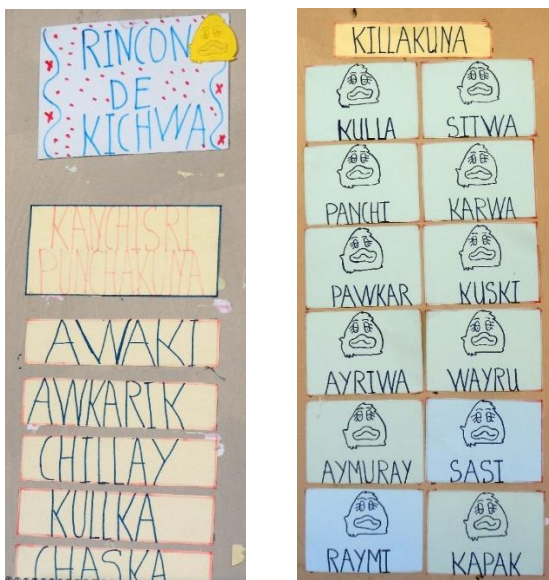 RINCON
DE
KICHWA
KANCHISRI
PUNCHAKUNA
AWAKI
AWKARIK
CHILLAY
KULLKA
CHASKA
KILLAKUNA
KULLA
PANCHI
PAWKAR
AYRIWA
AYMURAY
RAYMI
SITWA
KARWA
KUSKI
WAYRU
SASI
KAPAK